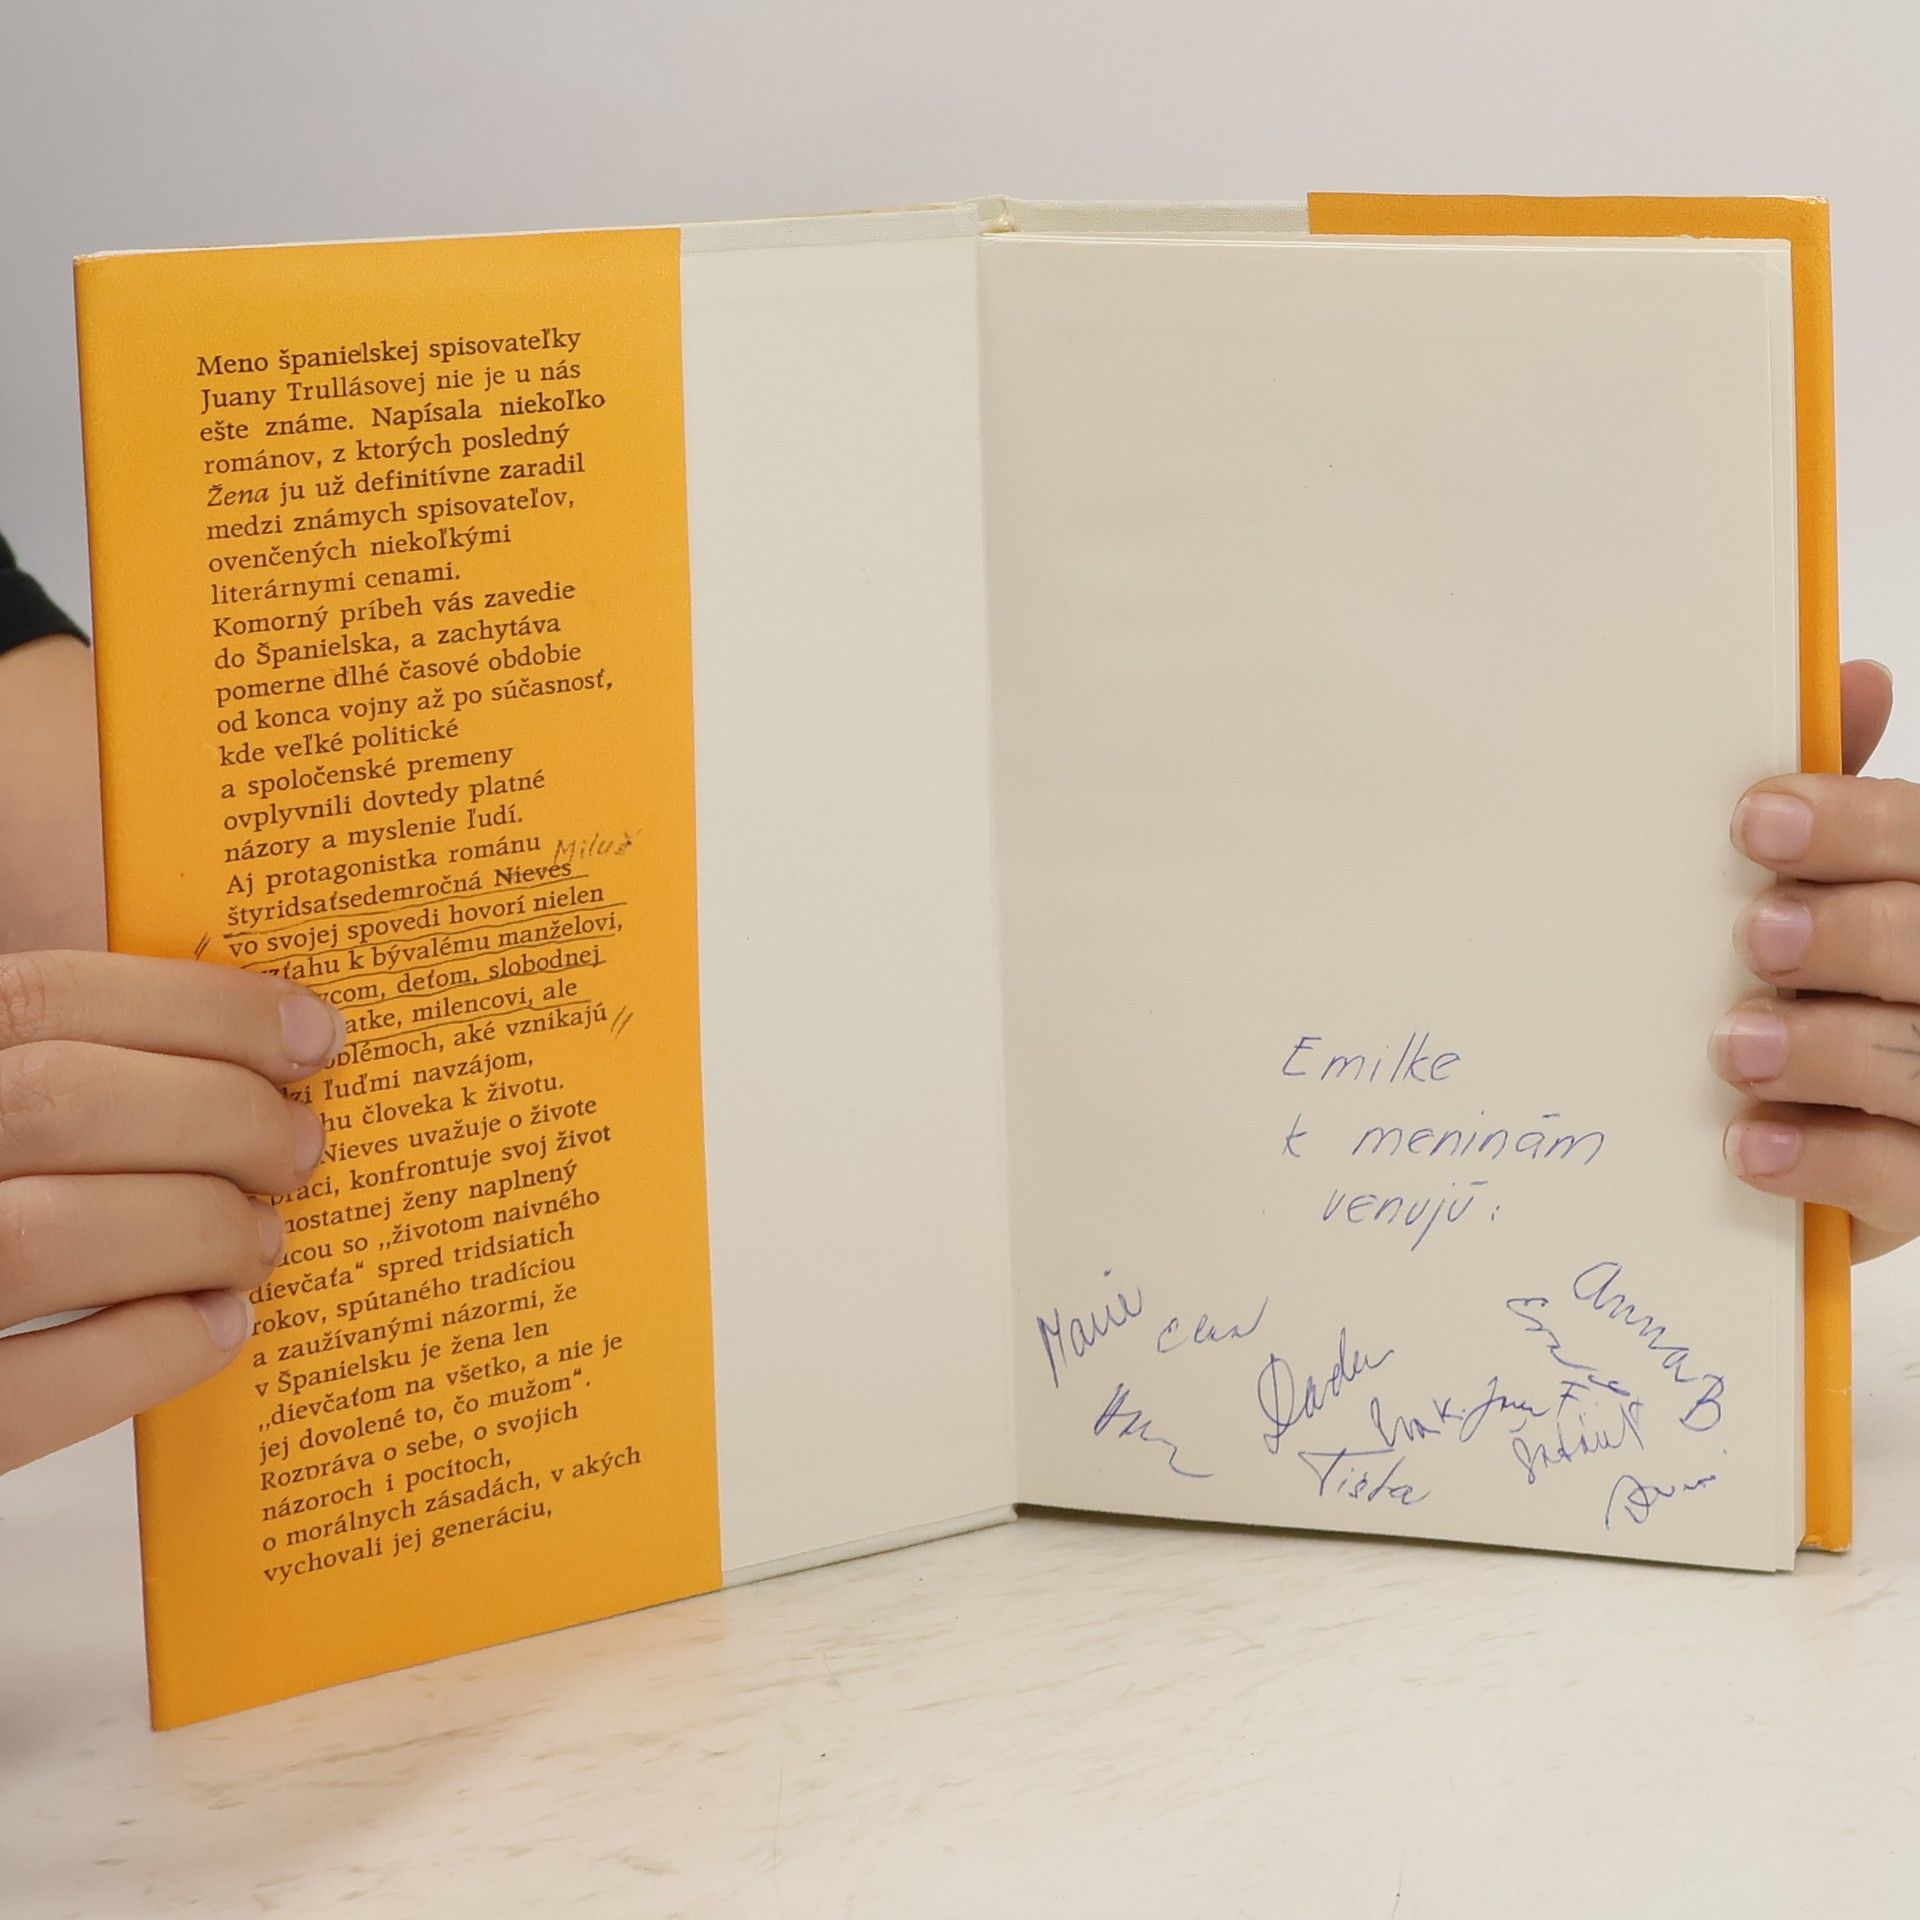 Meno španielskej spisovateľky
Juany Trullásovej nie je u nás
ešte známe. Napísala niekoľko
románov, z ktorých posledný
Žena ju už definitívne zaradil
medzi známych spisovateľov,
ovenčených niekoľkými
literárnymi cenami.
Komorný príbeh vás zavedie
do Španielska, a zachytáva
pomerne dlhé časové obdobie
od konca vojny až po súčasnosť,
kde veľké politické
a spoločenské premeny
ovplyvnili dovtedy platné
názory a myslenie ľudí.
Aj protagonistka románu Miluš
štyridsaťsedemročná Nieves
vo svojej spovedi hovorí nielen
zťahu k bývalému manželovi,
com, deťom, slobodnej
atke, milencovi, ale
blémoch, aké vznikajú
zi ľuďmi navzájom,
hu človeka k životu.
Nieves uvažuje o živote
práci, konfrontuje svoj život
mostatnej ženy naplnený
ácou so „životom naivného
dievčaťa“ spred tridsiatich
rokov, spútaného tradíciou
a zaužívanými názormi, že
v Španielsku je žena len
„dievčaťom na všetko, a nie je
jej dovolené to, čo mužom“.
Rozpráva o sebe, o svojich
názoroch i pocitoch,
o morálnych zásadách, v akých
vychovali jej generáciu,
Emilke
k meninám
venujú:
Marie
Anna B
Tista